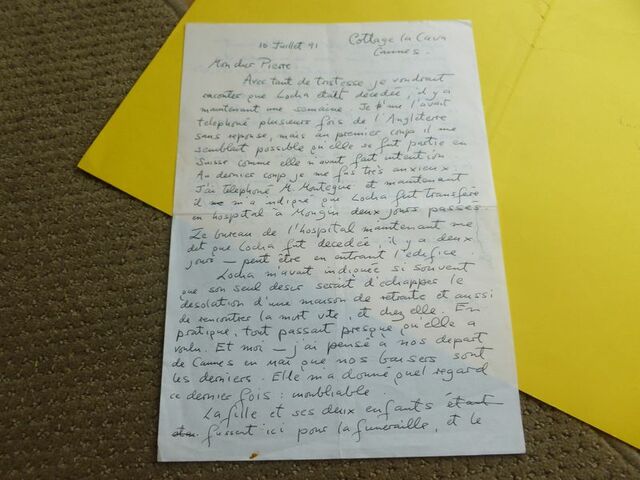 10 Juillet 91 Cottage la Cava
Cannes.
Mon cher Pierre
Avec tant de tristesse je voudrait
raconter que Locha était décedée, il y a
maintenant une semaine. Je l'avait
telephoné plusieurs fois de l'Angleterre
sans reponse, mais au premier coup il me
semblait possible qu'elle se fut partie en
Suisse comme elle m'avait fait intention
Au dernier coup je me fus très anxieux
J'ai telephoné M. Montegue et maintenant
il m'a indiqué que Locha fut transféré
en hospital à Mongin deux jours passés
Le bureau de l'hospital maintenant me
dit que Locha fut decedée, il y a deux
jours — peut être en entrant l'edifice
Locha m'avait indiquée si souvent
que son seul desir serait d'echapper le
desolation d'une maison de retraite et aussi
de rencontrer la mort vite, et chez elle. En
pratique, tout passait presque qu'elle a
voulu. Et moi — j'ai pensé à nos depart
de Cannes en mai que nos baisers sont
les derniers. Elle m'a donné quel regard
ce dernier fois: inoubliable.
La fille et ses deux enfants étant
fussent ici pour la funeraille, et le